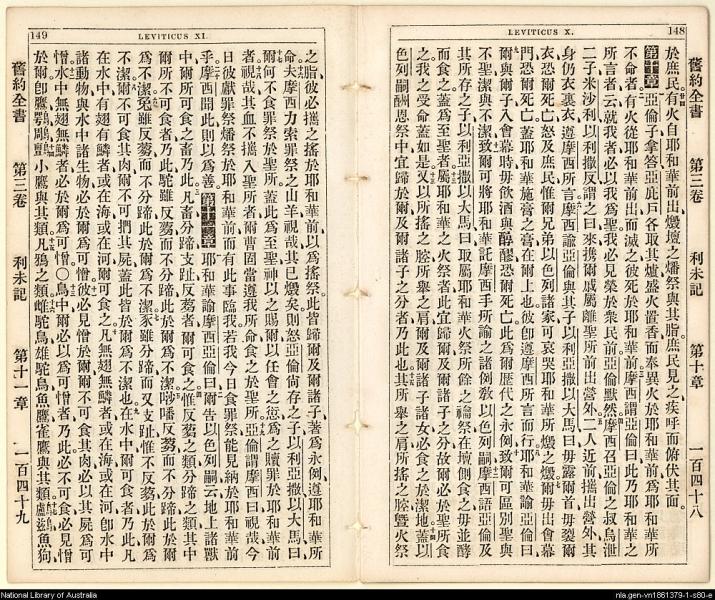 148
LEVITICUS X.
舊約全書 第三卷 利未記 第十章 一百四十八
於庶民有火自耶和華前出燬壇之燔祭與其脂庶民見之疾呼而俯伏其面
第十章 亞倫子拿答亞庇戶各取其爐盛火置香而奉異火於耶和華前爲耶和華所
不命者有火從耶和華前出而滅之彼死耶和華前摩西謂亞倫曰此乃耶和華之
所言者云就我者必以我爲聖我必見榮於衆民前亞倫默然摩西召亞倫之叔烏泄
二子米沙利以利撒反謂之曰來携爾戚屬離聖所前出營外二人近前㨫出營外其
身仍衣裏衣遵摩西所言摩西諭亞倫與其子以利亞撒以大馬曰毋露爾首毋裂爾
衣恐爾死亡怒及庶民惟爾兄弟以色列諸家可哀哭耶和華所燬之燬爾毋出會幕
門恐爾死亡蓋耶和華施膏之膏在爾上也彼卽遵摩西所言而行耶和華諭亞倫曰
爾與爾子入會幕時毋飲酒與醇醪恐爾死亡此爲爾歷代之永例致爾可區別聖與
不聖潔與不潔致爾可將耶和華託摩西手所諭之諸例教以色列嗣摩西語亞倫及
其所存之子以利亞撒以大馬曰取屬耶和華火祭所餘之禴祭在壇側食之毋並酵
而食之蓋爲至聖者屬耶和華之火祭者此宜歸爾與爾子之分故爾必於聖所食
之我之受命蓋如是又以所搖之腔所舉之肩爾及爾諸子諸女必食之於潔地蓋以
色列嗣酬恩祭中宜歸於爾及爾諸子之分者乃此也其所舉之肩所搖之腔曁火祭
149
LEVITICUS XI.
之脂彼必㩦之搖於耶和華前以爲搖祭此皆歸爾及爾諸子著爲永例遵耶和華所
命夫摩西力索罪祭之山羊視哉其已燬矣則怒亞倫尙存之子以利亞撒以大馬曰
爾何不食罪祭於聖所蓋此爲至聖神以之賜爾以任會之愆爲之贖罪於耶和華前
者視哉其血不攜入聖所者爾曹固當遵我所命食之於聖所亞倫謂摩西曰視哉今
日彼獻罪祭燔祭於耶和華前而有此事臨我若我今日食罪祭能見納於耶和華前
乎摩西聞此則以爲善 第十一章 耶和華諭摩西亞倫曰爾告以色列嗣云地上諸獸
中爾所可食之畜乃此凡畜分蹄支趾反芻者爾可食之惟反芻之類分蹄之類其中
爾所不可食者乃此駝雖反芻而不分蹄此於爾爲不潔沙噃反芻而不分蹄此於爾
爲不潔兔雖反芻而不分蹄此於爾爲不潔豕雖分蹄而又支趾惟不反芻此於爾爲
不潔爾不可食其肉爾不可捫其屍蓋此皆於爾爲不潔也在水中爾可食者乃此凡
在水中有翅有鱗者或在海或在河爾可食之凡無翅無鱗者或在海或在河卽水中
諸動物與水中諸生物必於爾爲可憎彼必見憎於爾爾不可食其肉必以其屍爲可
憎水中無翅無鱗者必於爾爲可憎〇鳥中爾必以爲可憎者乃此必不可食必見憎
於爾卽鷹鶚鵰鸇小鷹與其類凡鴉之類雌駝鳥雄駝鳥魚鷹雀鷹與其類鸕鷀魚狗
舊約全書 第三卷 利未記 第十一章 一百四十九
National Library of Australia
nla.gen-vn1861379-1-s80-e